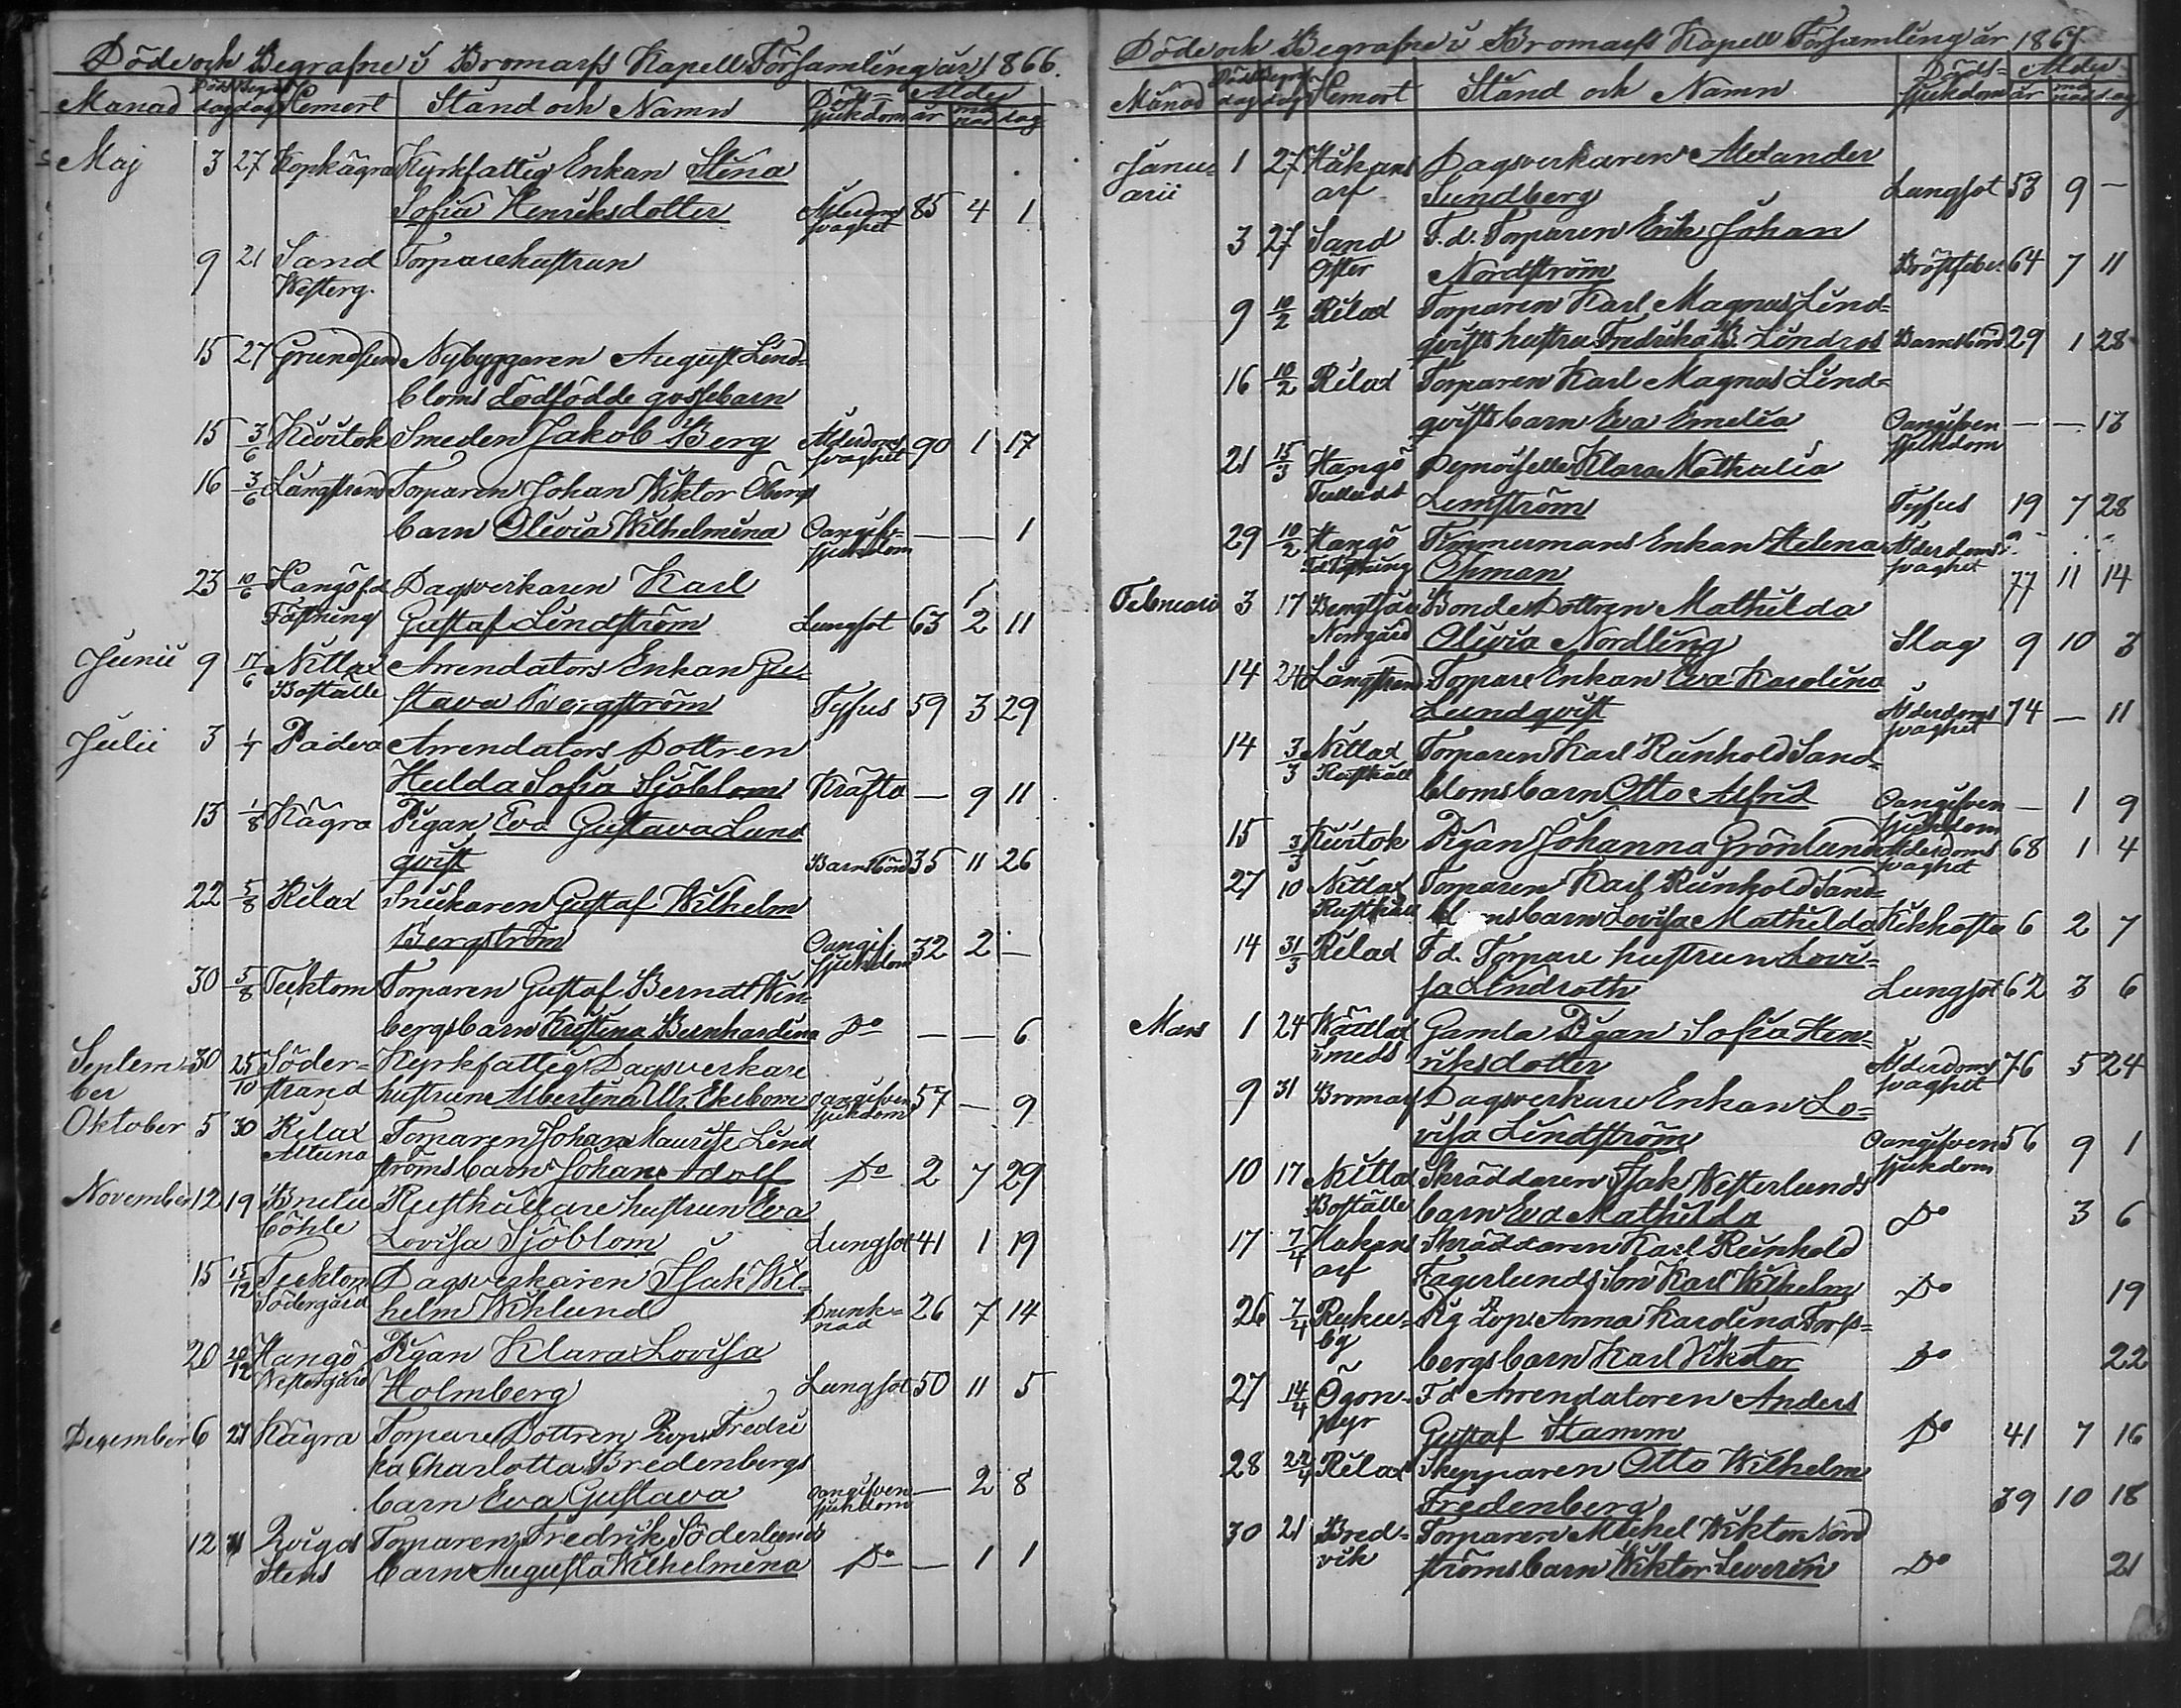 Döde och Begrafne i Bromarfs Kapell Församling år 1866.
Månad Döds dag Begr. dag Hemort Stånd och Namn Döds- sjukdom Ålder år månad dag
Maj 3 27 Kopkägra Kyrkfattig Enkan Stina
Sofia Henriksdotter Ålderdoms svaghet 85 4 1
9 21 Sand Torparehustrun
Westerg.
15 27 Grundsund Nybyggaren August Lind-
bloms dödfödde gossebarn
15 3/6 Kivitok Smeden Jakob Berg Ålderdoms svaghet 90 1 17
16 3/6 Långstrand Torparen Johan Wiktor Öbergs
barn Olivia Wilhelmina Oangifv. sjukdom — — 1
23 10/6 Hangö f.d. Dagsverkaren Karl
Fästning Gustaf Lindström Lungsot 63 2 11
Junii 9 17/6 Nitlax Arrendators Enkan Gu-
Boställe stava Bergström Tyfus 59 3 29
Julii 3 1/7 Padva Arrendators Dottren
Hulda Sofia Sjöblom Kräfta — 9 11
13 1/8 Kägra Pigan Eva Gustava Lund
qvist Barnsbörd 35 11 26
22 5/8 Rilax Snickaren Gustaf Wilhelm
Bergström Oangif. sjukdom 32 2 —
30 5/8 Tecktom Torparen Gustaf Berndt Win-
bergs barn Kristina Bernhardina Do — — 6
Septem- 30 25/10 Söder- Kyrkfattig Dagsverkare
ber strand hustrun Albertina Ulr. Ekebom oangifven sjukdom 57 — 9
Oktober 5 30 Rilax Torparen Johan Mauritz Lind
Altuna ströms barn Johan Adolf Do 2 7 29
November 12 19 Rusthållare hustrun Eva
Böhle Lovisa Sjöblom Lungsot 41 1 19
15 15/12 Tecktom Dagsverkaren Isak Wil-
Södergård helm Wiklund Drunk- nad 26 7 14
20 Hangö Pigan Klara Lovisa
Westergård Holmberg Lungsot 50 11 5
December 6 21 Kägra Torpare Dottren Fredri
ka Charlotta Fredenbergs
barn Eva Gustava oangifven sjukdom — 2 8
12 Torparen Fredrik Söderlunds
Stens barn Augusta Wilhelmina Do — 1 1
Döde och Begrafne i Bromarfs Kapell Församling år 1867
Månad Döds dag Begr. dag Hemort Stånd och Namn Döds- sjukdom Ålder år månad dag
Janu- 1 27 Håkans Dagsverkaren Alexander
arii arf Sundberg Lungsot 53 9 —
3 27 Sand F.d. Torparen Erik Johan
Öster Nordström Bröstfeber 64 7 11
9 10/2 Rilax Torparen Karl Magnus Lind-
qvists hustru Fredrika B. Lindros Barnsbörd 29 1 28
16 10/2 Rilax Torparen Karl Magnus Lind-
qvists barn Eva Emelia Oangifven sjukdom — — 13
21 15/3 Hangö Demoiselle Klara Nathalia
Lemström Tyfus 19 7 28
29 10/2 Hangö Timmermans Enkan Helena Ålderdoms svaghet
Öhman 77 11 14
Februari 3 17 Bengtsår Bonde Dottren Mathilda
Norrgård Olivia Nordling Slag 9 10 3
14 24 Långstrand Torpare Enkan Eva Karolina
Lundqvist Ålderdoms svaghet 74 — 11
14 3/3 Nitlax Torparen Karl Reinhold Sand-
Rusthåll bloms barn Otto Alfrid Oangifven sjukdom — 1 9
15 3/3 Kivitok Pigan Johanna Grönlund Ålderdoms svaghet 68 1 4
27 10 Nitlax Torparen Karl Reinhold Sand-
Rusthåll bloms barn Lovisa Mathilda Kikhosta 6 2 7
14 31/3 Rilax F.d. Torpare hustrun Lovi-
sa Lindroth Lungsot 62 3 6
Mars 1 24 Wättlax Gamla Pigan Sofia Hen-
Smeds riksdotter Ålderdoms svaghet 76 5 24
9 31 Bromarf Dagsverkare Enkan Lo-
visa Lindström Oangifven sjukdom 56 9 1
10 17 Nitlax Skräddaren Isak Westerlunds
Boställe barn Eva Mathilda Do 3 6
17 7/4 Håkans Skräddaren Karl Reinhold
arf Fagerlunds Son Karl Wilhelm Do 19
26 7/4 Anna Karolina Fors-
by bergs barn Karl Viktor Do 22
27 14/4 F d Arrendatoren Anders
Gustaf Stamm Do 41 7 16
28 22/4 Rilax Skepparen Otto Wilhelm
Fredenberg 39 10 18
30 21 Bred- Torparen Mickel Wiktor Nord
vik ströms barn Wiktor Severin Do 21